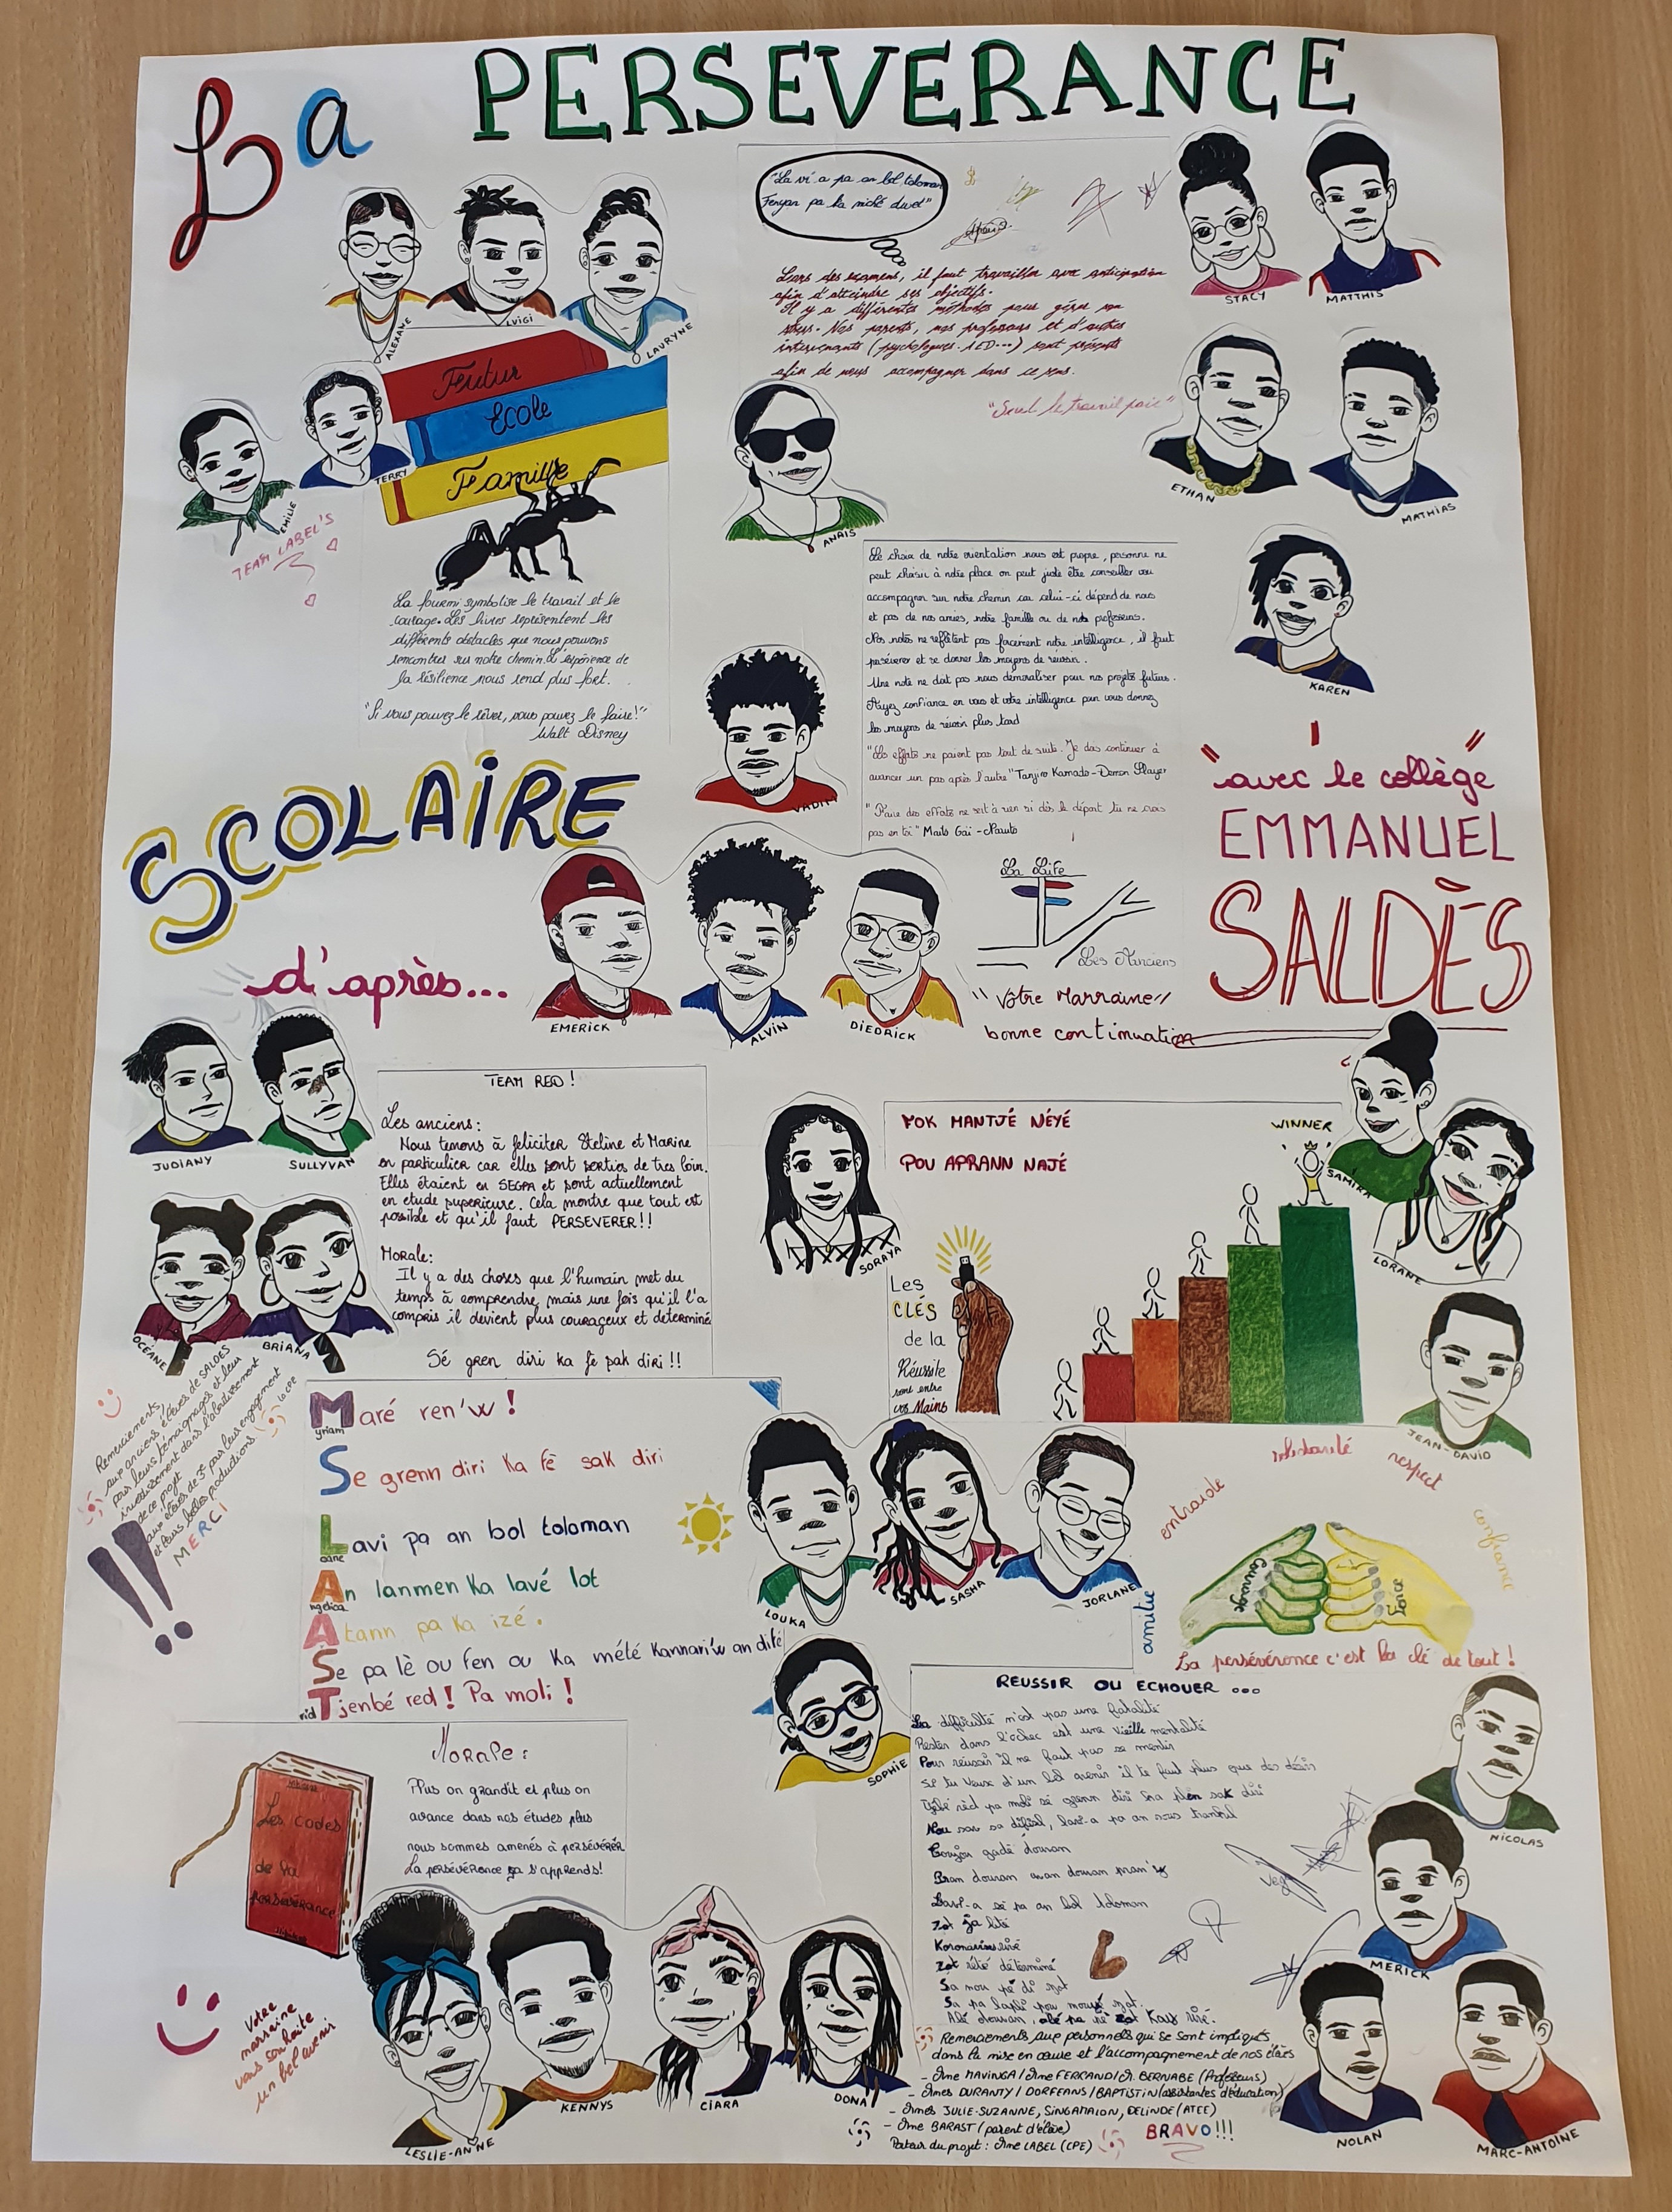 La PERSEVERANCE
"La vi a pa an bol toloman
Fenyan pa ka niché duvet"
Lors des examens, il faut travailler avec anticipation
afin d'atteindre ses objectifs.
Il y a différentes méthodes pour gérer son
stress. Nos parents, nos professeurs et d'autres
intervenants (psychologues. AED...) sont présents
afin de nous accompagner dans ce sens.
"Seul le travail paie"
STACY
MATTHIS
ALEXANE
LUIGI
LAURYNE
Futur
Ecole
Famille
EMILIE
TERRY
TEAM LABEL'S
ANAIS
ETHAN
MATHIAS
KAREN
La fourmi symbolise le travail et le
courage. Les livres représentent les
différents obstacles que nous pouvons
rencontrer sur notre chemin. L'expérience de
la résilience nous rend plus fort.
"Si vous pouvez le rêver, vous pouvez le faire!"
Walt Disney
Le choix de notre orientation nous est propre, personne ne
peut choisir à notre place on peut juste être conseiller ou
accompagner sur notre chemin car celui-ci dépend de nous
et pas de nos amies, notre famille ou de nos professeurs.
Nos notes ne reflètent pas forcément notre intelligence, il faut
persévérer et se donner les moyens de réussir.
Une note ne doit pas nous démoraliser pour nos projets futurs.
Ayez confiance en vous et votre intelligence pour vous donnez
les moyens de réussir plus tard
"Les efforts ne paient pas tout de suite. Je dois continuer à
avancer un pas après l'autre" Tanjiro Kamado - Demon Slayer
"Faire des efforts ne sert à rien si dès le départ tu ne crois
pas en toi" Maito Gai - Naruto
SCOLAIRE
d'après...
"avec le collège"
EMMANUEL
SALDÈS
EMERICK
ALVIN
DIEDRICK
La Life
Les Anciens
"Votre Marraine"
bonne continuation
JUDIANY
SULLYVAN
OCÉANE
BRIANA
TEAM RED !
Les anciens :
Nous tenons à feliciter Steline et Marine
en particulier car elles sont sorties de tres loin.
Elles étaient en SEGPA et sont actuellement
en etude superieure. Cela montre que tout est
possible et qu'il faut PERSEVERER !!
Morale:
Il y a des choses que l'humain met du
temps à comprendre, mais une fois qu'il l'a
compris il devient plus courageux et determiné
Sé gren diri ka fè pak diri !!
SORAYA
FOK MANTJÉ NÉYÉ
POU APRANN NAJÉ
WINNER
Les
CLÉS
de la
Réussite
sont entre
vos Mains
SAMIRA
LORANE
JEAN-DAVID
Remerciements,
aux anciens élèves de SALDES
pour leurs témoignages et leur
investissement dans l'aboutissement
de ce projet
aux élèves de 3e pour leur engagement
et leurs belles productions. La CPE
MERCI
!!
Maré ren'w !
yriam
Se grenn diri Ka fè sak diri
Lavi pa an bol toloman
An lanmen Ka lavé lot
ngélica
Atann pa Ka izé.
Se pa lè ou fen ou Ka mété Kannari'w an difé
Tjenbé red ! Pa moli !
rid
LOUKA
SASHA
JORLANE
SOPHIE
entraide
solidarité
respect
confiance
amitié
Courage
Force
La persévérance c'est la clé de tout !
Morale :
Plus on grandit et plus on
avance dans nos études plus
nous sommes amenés à persévérer
La persévérance ça s'apprends!
Les codes
de la
persévérance
REUSSIR OU ECHOUER ...
La difficulté n'est pas une fatalité
Rester dans l'échec est une vieille mentalité
Pour réussir il ne faut pas se mentir
Si tu veux d'un bel avenir il te faut plus que des désirs
Toujou gadé douvan
Lavi-a sé pa an bol toloman
zot ja lité
zot rété déterminé
NICOLAS
MERICK
NOLAN
MARC-ANTOINE
Votre
marraine
vous souhaite
un bel avenir
LESLIE-ANNE
KENNYS
CIARA
DONA
Remerciements aux personnels qui se sont impliqués
dans la mise en oeuvre et l'accompagnement de nos élèves
- Mme MAVINGA / Mme FERRAND / M. BERNABE (Professeurs)
- Mmes DURANTY / DORFEANS / BAPTISTIN (assistantes d'éducation)
- Mmes JULIE-SUZANNE, SINGAMALON, DELINDE (ATEE)
- Mme BARAST (parent d'élève)
Porteur du projet : Mme LABEL (CPE)
BRAVO!!!